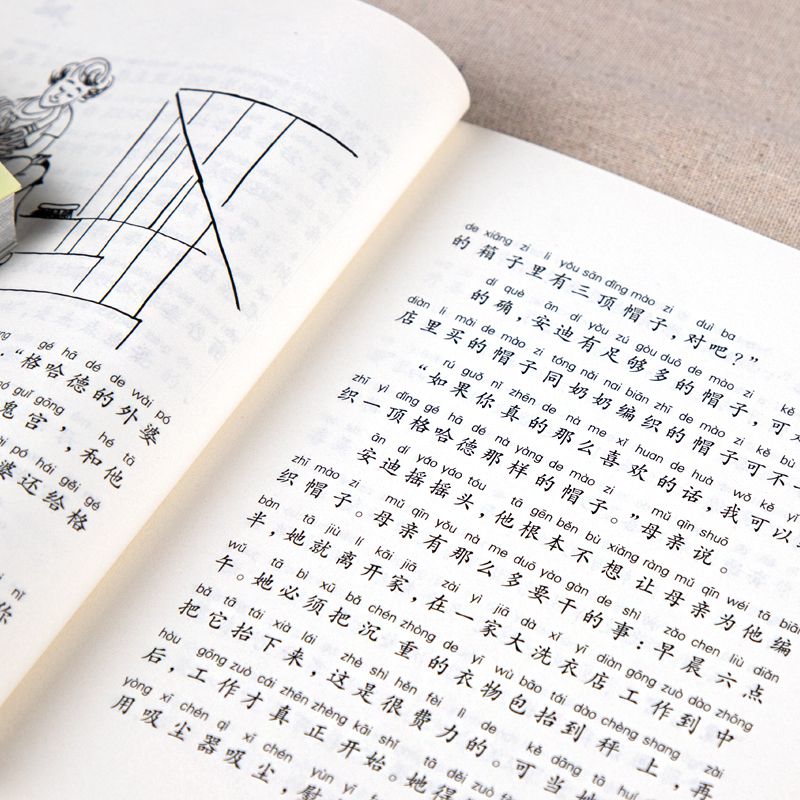 gé hā dé de wài pó
“格哈德的外婆
guǐ gōng hé tā
鬼宫，和他
pó hái gěi gé
婆还给格
nǐ
你
de xiāng zi lǐ yǒu sān dǐng mào zi duì ba
的箱子里有三顶帽子，对吧？”
dí què ān dí yǒu zú gòu duō de mào zi kě
的确，安迪有足够多的帽子，可
diàn lǐ mǎi de mào zi tóng nǎi nai biān zhī de mào zi kě bù
店里买的帽子同奶奶编织的帽子可不一
rú guǒ nǐ zhēn de nà me xǐ huan de huà wǒ kě yǐ
“如果你真的那么喜欢的话，我可以
zhī yì dǐng gé hā dé nà yàng de mào zi mǔ qīn shuō
织一顶格哈德那样的帽子。”母亲说。
ān dí yáo yáo tóu tā gēn běn bù xiǎng ràng mǔ qīn wèi tā biān
安迪摇摇头，他根本不想让母亲为他编
zhī mào zi mǔ qīn yǒu nà me duō yào gàn de shì zǎo chen liù diǎn
织帽子。母亲有那么多要干的事：早晨六点
bàn tā jiù lí kāi jiā zài yì jiā dà xǐ yī diàn gōng zuò dào zhōng
半，她就离开家，在一家大洗衣店工作到中
wǔ tā bì xū bǎ chén zhòng de yī wù bāo tái dào chèng shang zài
午。她必须把沉重的衣物包抬到秤上，再
bǎ tā tái xià lái zhè shì hěn fèi lì de kě dāng tā huí
把它抬下来，这是很费力的。可当她
hòu gōng zuò cái zhēn zhèng kāi shǐ tā děi zuò
后，工作才真正开始。她得
yòng xī chén qì xī chén yùn yī
用吸尘器吸尘，熨